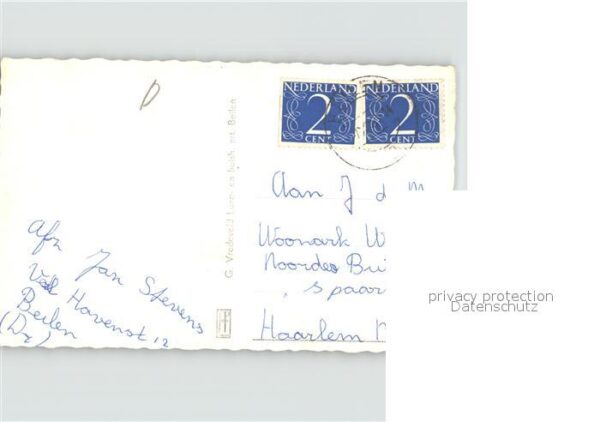 D
NEDERLAND
2
CENT
NEDERLAND
2
CENT
Aan J d
Woonark W
Noorder Bui
, Spaar
Haarlem N
G. Vredeveld Luxe- en huish. art. Beilen
Afz Jan Stevens
Havenst. 12
Beilen
(Dr)
privacy protection
Datenschutz